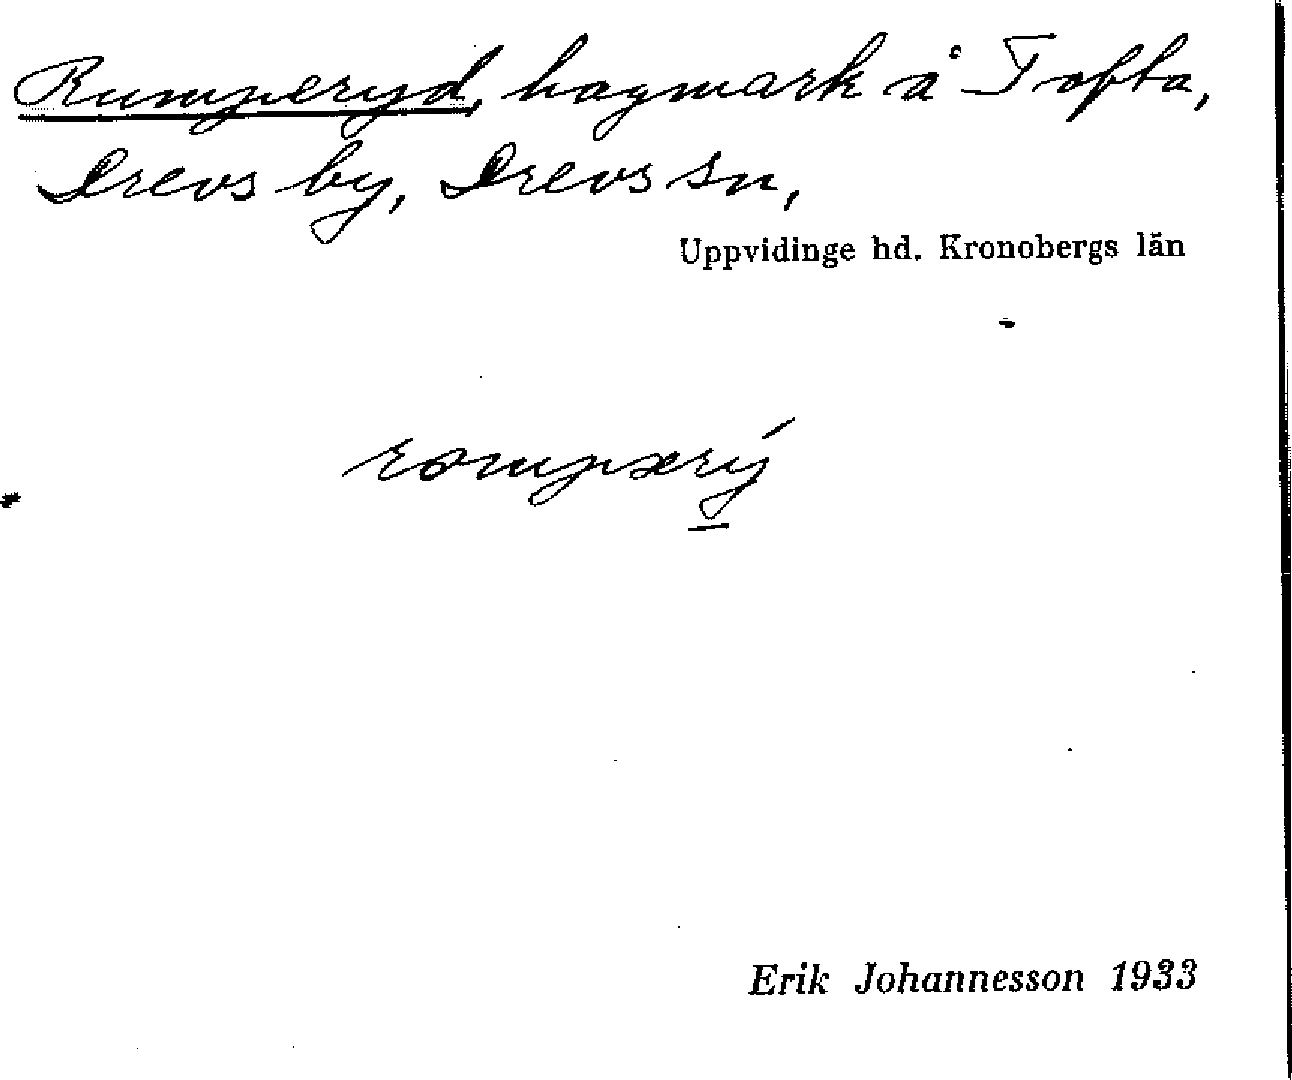 Rumperyd, hagmark å Tofta,
Drevs by, Drevs sn,
Uppvidinge hd. Kronobergs län
rompærý
Erik Johannesson 1933